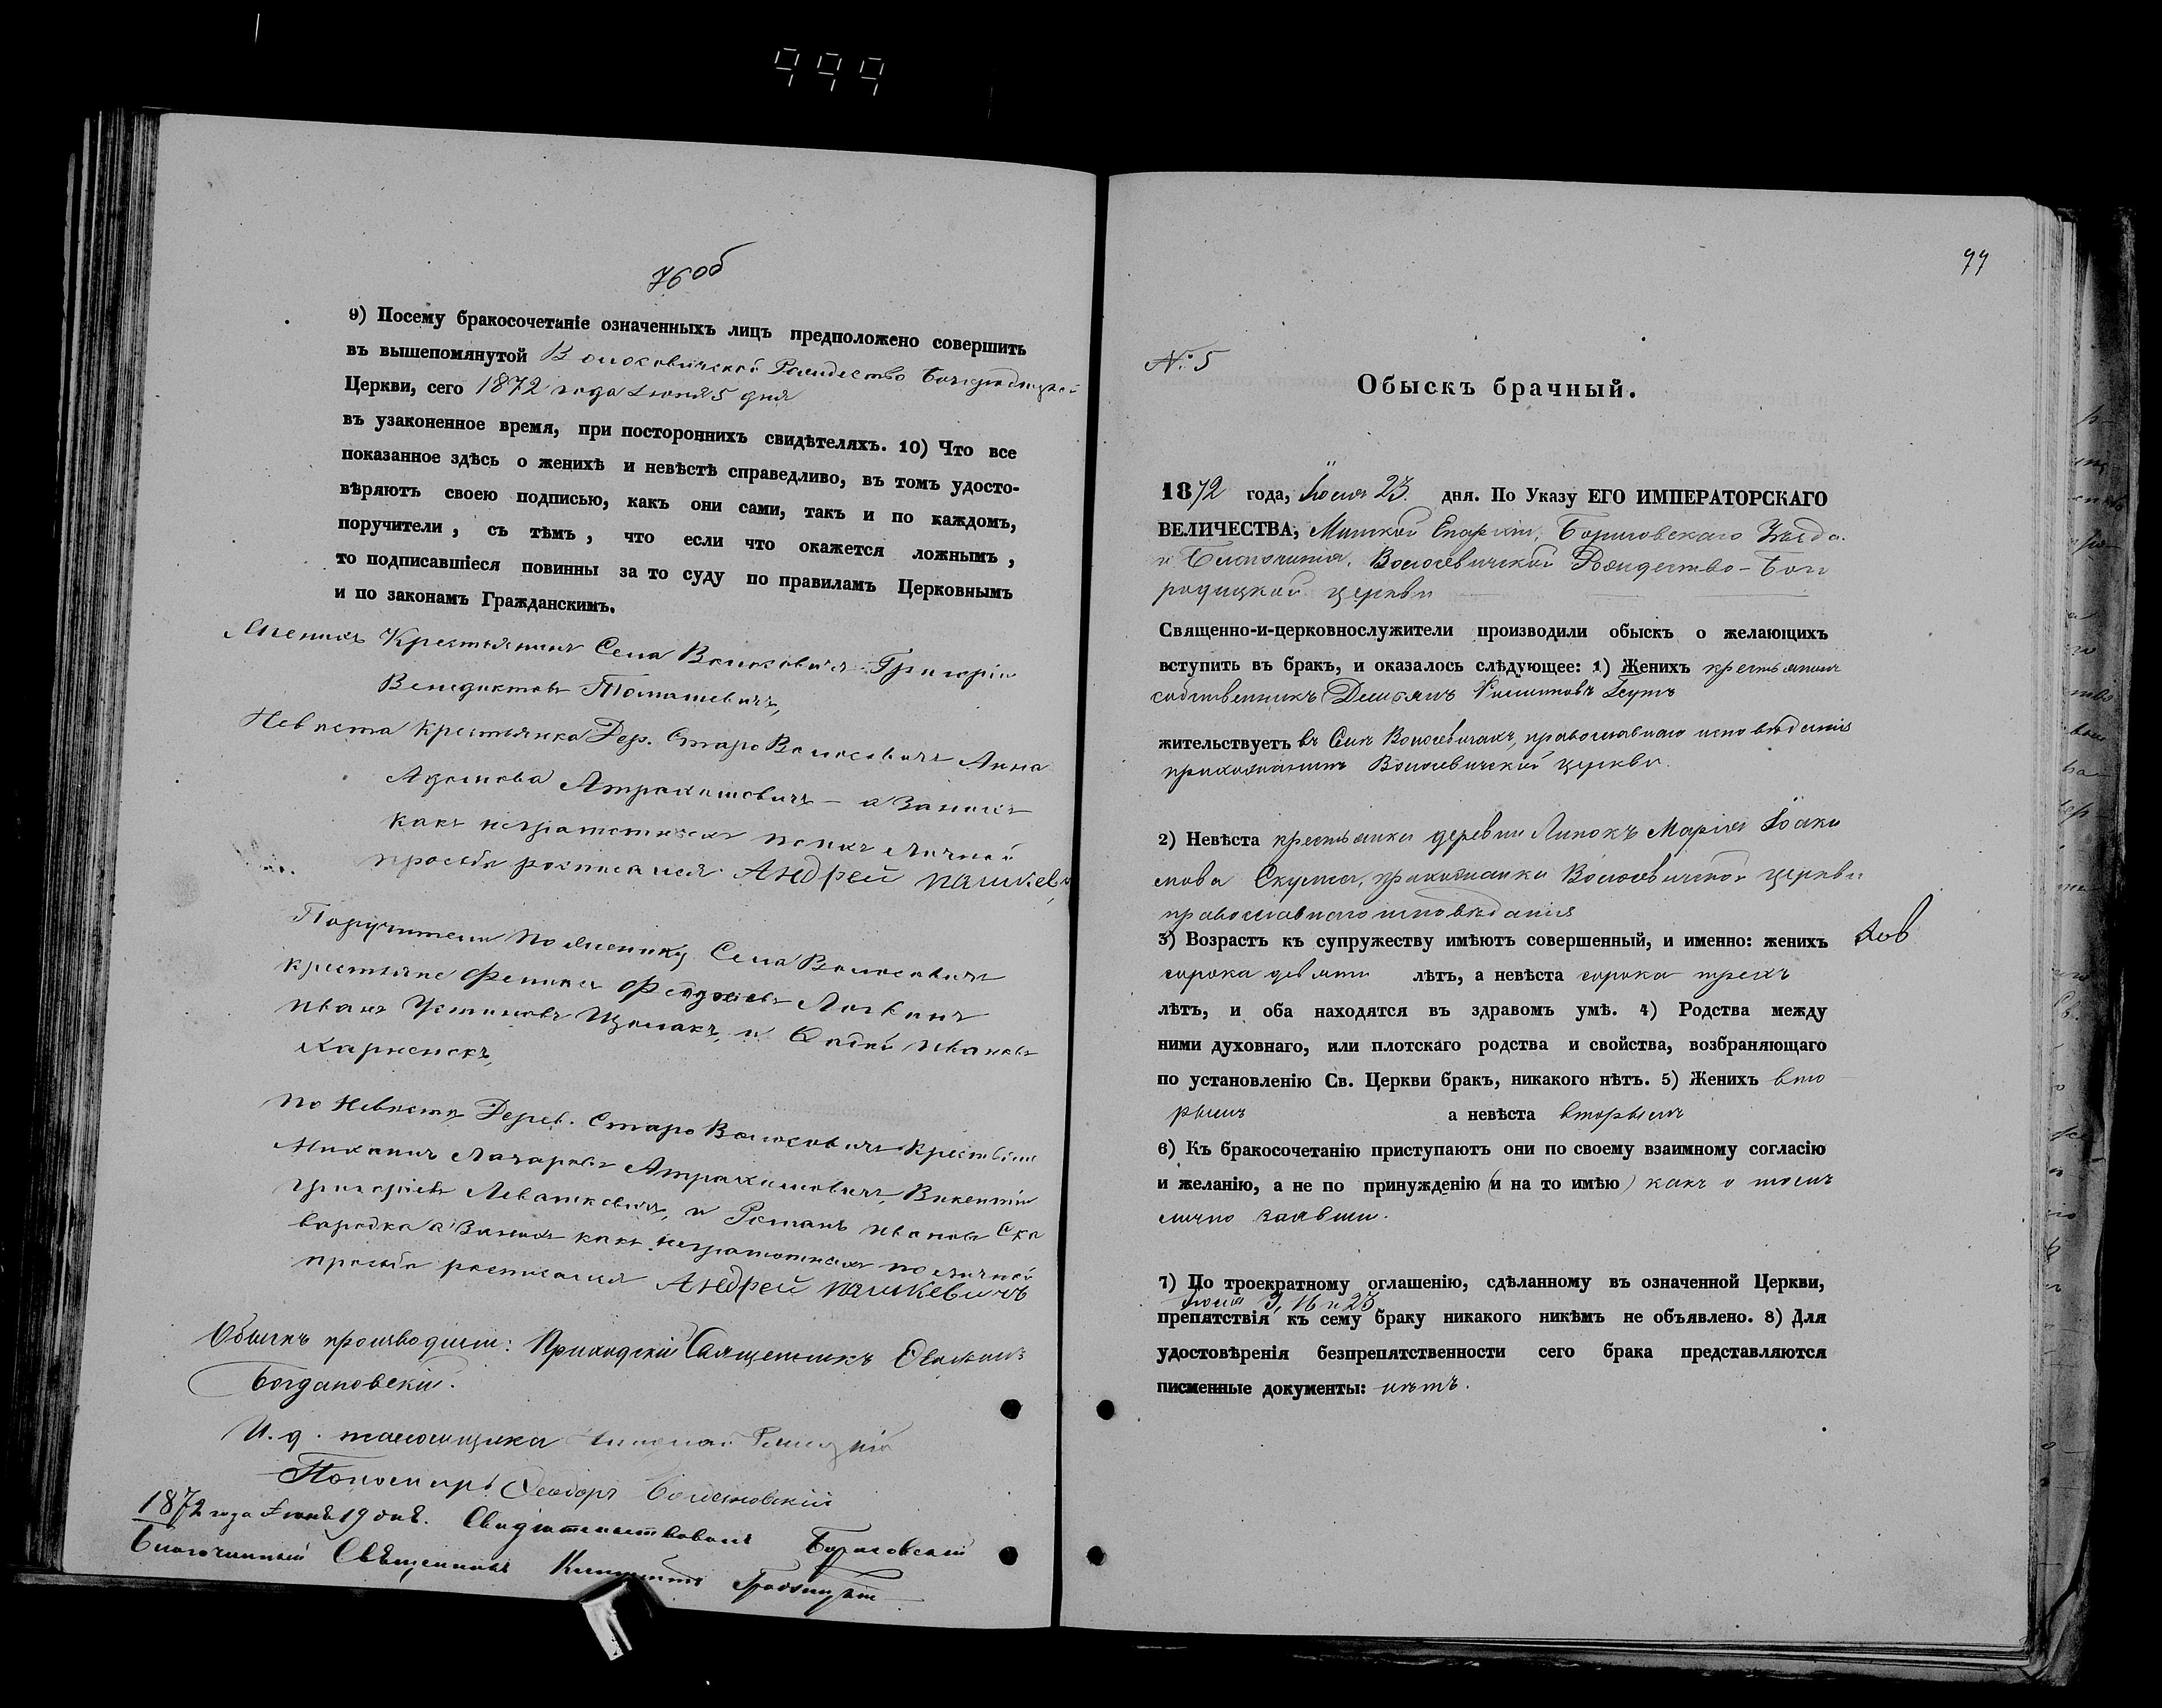 999
76 об
9) Посему бракосочетаніе означенныхъ лицъ предположено совершить
въ вышепомянутой Волосовичской Рождество Богородицкой
Церкви, сего 1872 года Іюня 5 дня
въ узаконенное время, при постороннихъ свидѣтеляхъ. 10) Что все
показанное здѣсь о женихѣ и невѣстѣ справедливо, въ томъ удосто-
вѣряютъ своею подписью, какъ они сами, такъ и по каждомъ,
поручители, съ тѣмъ, что если что окажется ложнымъ,
то подписавшіеся повинны за то суду по правиламъ Церковнымъ
и по законамъ Гражданскимъ.
Женихъ Крестьянинъ Села Волосовичъ Григорій
Венедиктовъ Томашевичъ,
Невѣста крестьянка Дер. Старо Волосовичъ Анна
Адамова Атрахимовичъ – а за нихъ
какъ неграмотныхъ по ихъ личной
прозьбѣ росписался Андрей пашкеви
Поручители по женику Села Волосовичъ
крестьяне Феликсъ
иванъ Устиновъ и Фадей Ивановъ
Карненокъ,
по Невѣстѣ Дерев. Старо Волосовичъ Крестьяне
Михаилъ Лазаровъ Атрахимовичъ, Викентій
григорьевъ Левашкевичъ, и Романъ ивановъ Ска
вародка а за нихъ какъ неграмотныхъ по личной
прозьбѣ росписался Андрей пашкевичъ
Обыскъ производили: Приходскій Священникъ
Богдановскій.
И. д. псаломщика Николай
Пономарь Феодоръ
1872 года Іюня 19 дня. Свидѣтельствовалъ Борисовскій
Благочинный Священникъ
77
№ 5
Обыскъ брачный.
1872 года, Іюля 23 дня. По Указу ЕГО ИМПЕРАТОРСКАГО
ВЕЛИЧЕСТВА, Минской Епархіи, Борисовскаго Уѣзда
и Благочинія, Волосевичской Рождество-Бого
родицкой церкви
Священно-и-церковнослужители производили обыскъ о желающихъ
вступить въ бракъ, и оказалось слѣдующее: 1) Женихъ крестьянинъ
собственникъ Демьянъ
жительствуетъ въ Селѣ Волосевичахъ, православнаго исповѣданія
прихожанинъ Волосевичской церкви.
2) Невѣста крестьянка деревни Липокъ Марія Іоаки
мова Скурта, прихожанка Волосевичской церкви
православнаго исповѣданія
3) Возрастъ къ супружеству имѣютъ совершенный, и именно: женихъ
сорока девяти лѣтъ, а невѣста сорока трехъ
лѣтъ, и оба находятся въ здравомъ умѣ. 4) Родства между
ними духовнаго, или плотскаго родства и свойства, возбраняющаго
по установленію Св. Церкви бракъ, никакого нѣтъ. 5) Женихъ вто
рымъ а невѣста вторымъ
6) Къ бракосочетанію приступаютъ они по своему взаимному согласію
и желанію, а не по принужденію (и на то имѣю) какъ о томъ
лично заявили.
7) По троекратному оглашенію, сдѣланному въ означенной Церкви,
Іюля 9, 16 и 23
препятствія къ сему браку никакого никѣмъ не объявлено. 8) Для
удостовѣренія безпрепятственности сего брака представляются
писменные документы: нѣтъ.